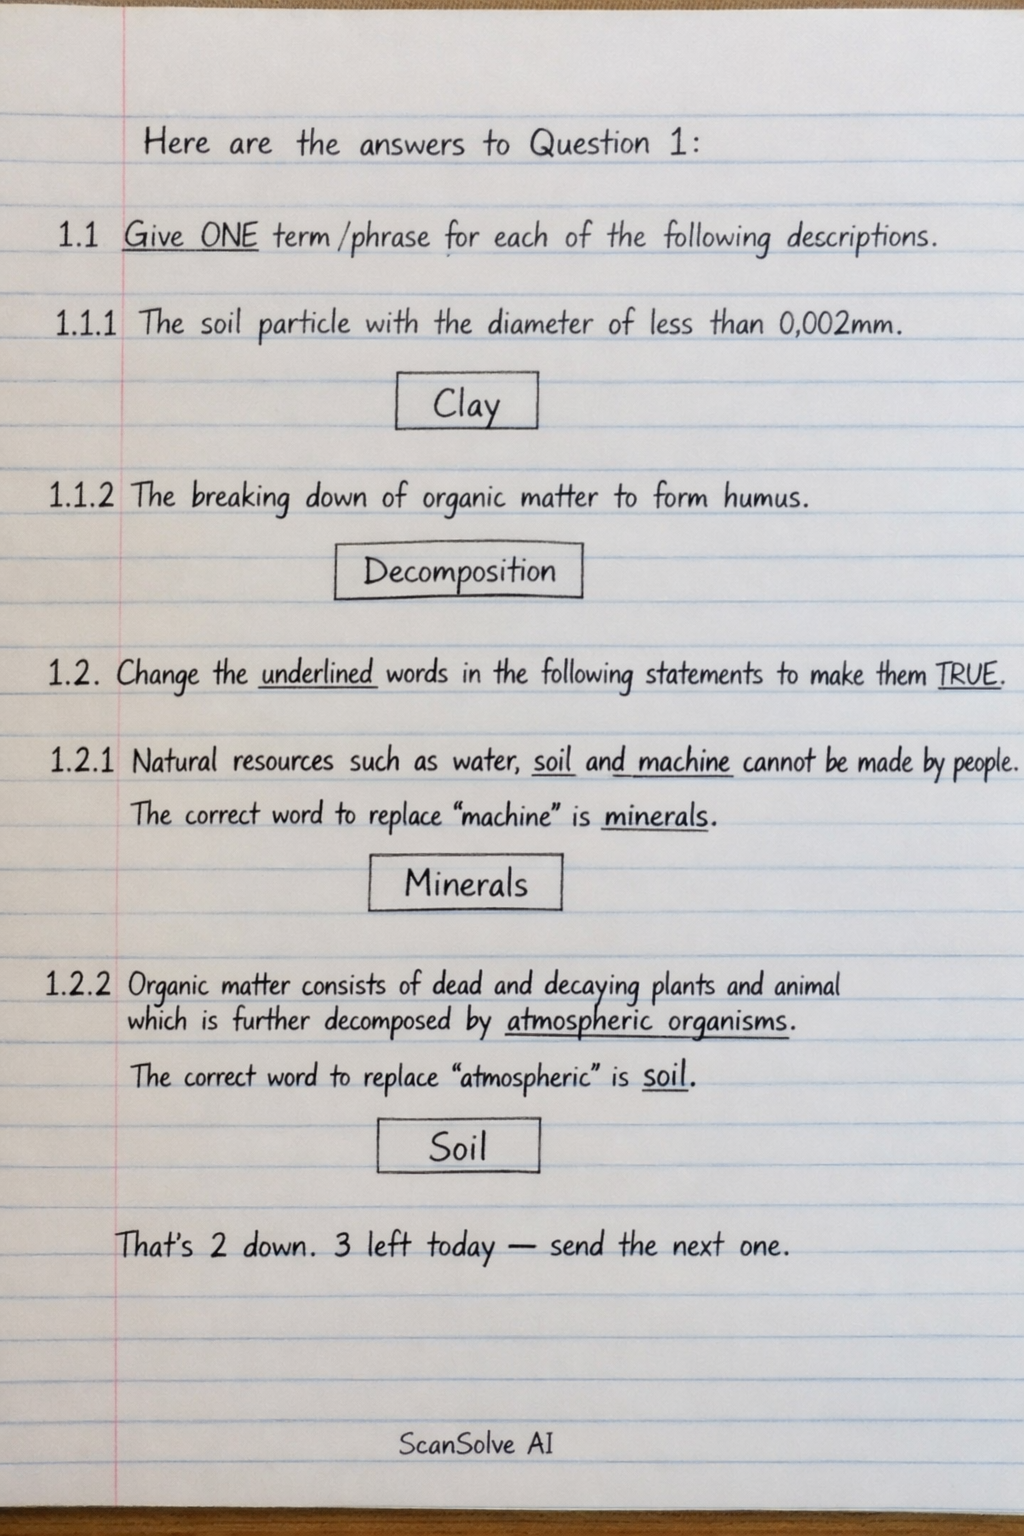 Here are the answers to Question 1:
1.1 Give ONE term/phrase for each of the following descriptions.
1.1.1 The soil particle with the diameter of less than 0,002mm.
Clay
1.1.2 The breaking down of organic matter to form humus.
Decomposition
1.2. Change the underlined words in the following statements to make them TRUE.
1.2.1 Natural resources such as water, soil and machine cannot be made by people.
The correct word to replace “machine” is minerals.
Minerals
1.2.2 Organic matter consists of dead and decaying plants and animal
which is further decomposed by atmospheric organisms.
The correct word to replace “atmospheric” is soil.
Soil
That's 2 down. 3 left today — send the next one.
ScanSolve AI